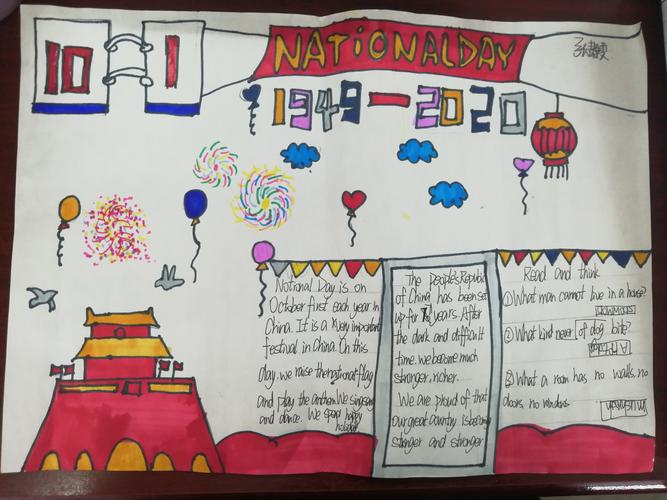 10 1
NATIONAL DAY
1949—2020
National Day is on
October first each year in
China. It is a very important
festival in China. On this
day, we raise the national flag
and play the anthem. We sing song
and dance. We spend happy
holiday
The People's Republic
of China has been set
up for years. After
the dark and difficult
time. we become much
stronger, richer.
We are proud of that
our great country is become
stronger and stronger
Read and think
① What man cannot live in a house?
snowman
② What kind never of dog bite?
③ What a room has no walls, no
doors no windows
mushroom